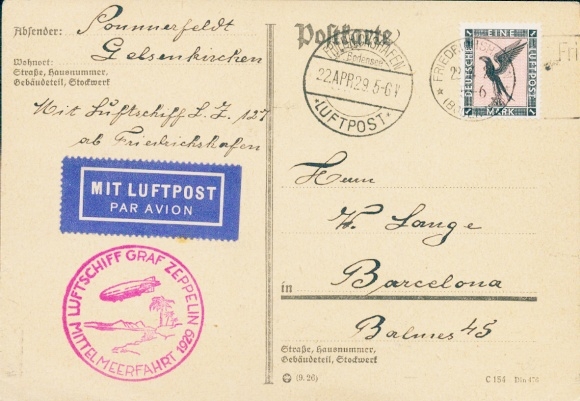 Absender: Pommerfeldt
Gelsenkirchen
Wohnort:
Straße, Hausnummer,
Gebäudeteil, Stockwerk
Mit Luftschiff L.Z. 127
ab Friedrichshafen
MIT LUFTPOST
PAR AVION
LUFTSCHIFF GRAF ZEPPELIN
MITTELMEERFAHRT 1929
Postkarte
Bodensee
22.APR.29.5-6V
LUFTPOST
FRIEDRICHSHAFEN
DEUTSCHE
EINE
LUFTPOST
MARK
Herrn
W. Lange
in Barcelona
Balmes 45
Straße, Hausnummer,
Gebäudeteil, Stockwerk
(9. 26)
C 154 Din 476